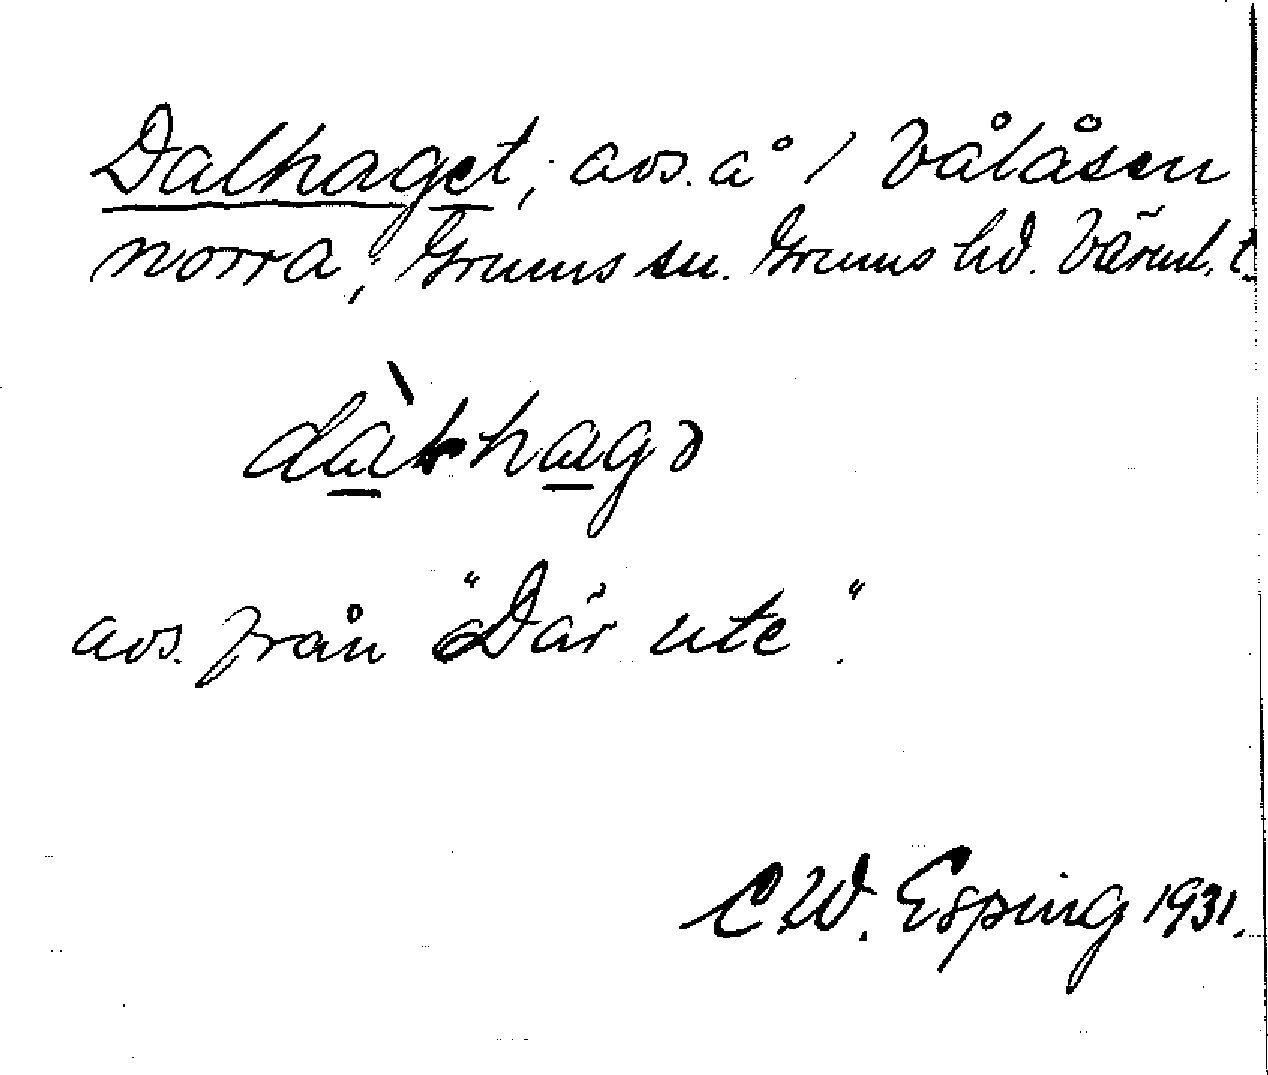 Dalhaget, avs. å 1 Vålåsen
norra, Grums sn. Grums hd. Värml. l.
hagə
avs. från "Där ute".
C.W. Esping 1931.